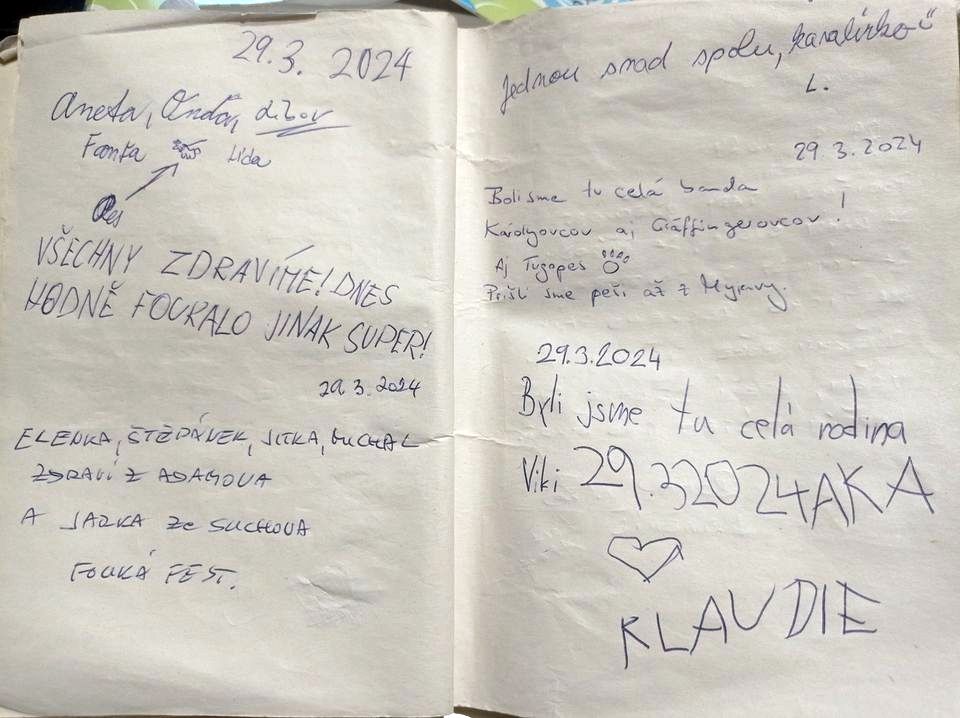 29.3. 2024
Aneta, Ondra, Libor
Fanka Lída
Pes
VŠECHNY ZDRAVÍME! DNES
HODNĚ FOUKALO JINAK SUPER!
29.3.2024
ELENKA, ŠTĚPÁNEK, JITKA, MICHAL
ZDRAVÍ Z ADAMOVA
A JARKA ZE SUCHOVA
FOUKÁ FEST.
Jednou snad spolu,
L.
29.3.2024
Boli sme tu celá banda
Károlyovcov aj Gräffingerovcov!
Aj Tugopes
Prišli sme peši až z Myjavy.
29.3.2024
Byli jsme tu celá rodina
Viki 29.32024AKA
KLAUDIE